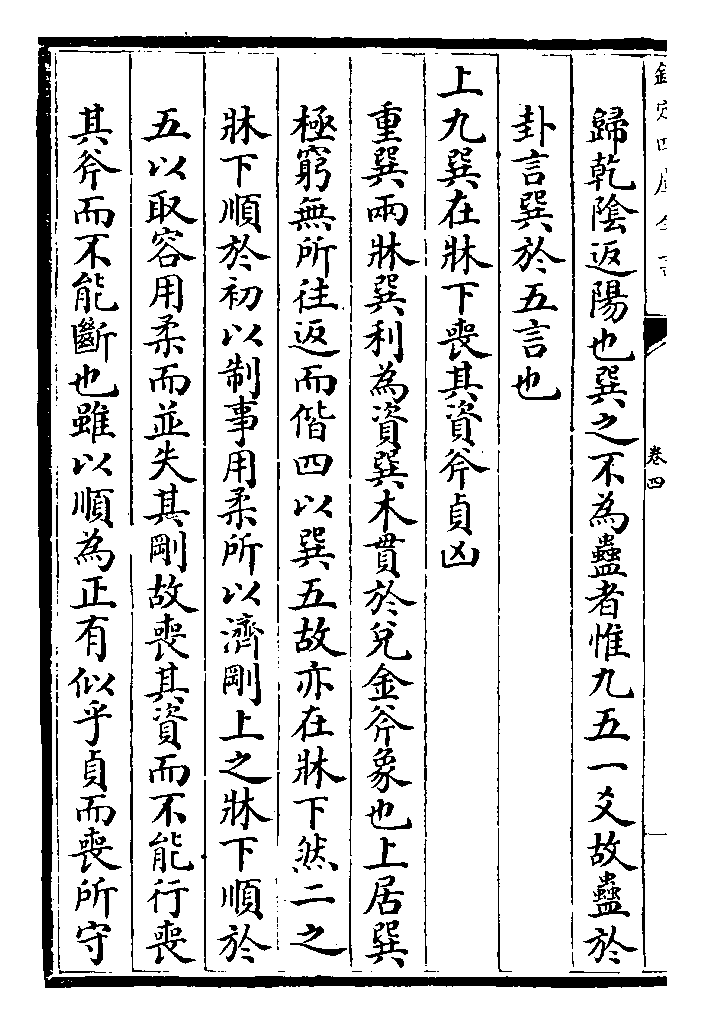 欽定四庫全書
卷四
歸乾陰返陽也巽之不為蠱者惟九五一爻故蠱於
卦言巽於五言也
上九巽在牀下喪其資斧貞凶
重巽兩牀巽利為資巽木貫於兌金斧象也上居巽
極窮無所往返而偕四以巽五故亦在牀下然二之
牀下順於初以制事用柔所以濟剛上之牀下順於
五以取容用柔而並失其剛故喪其資而不能行喪
其斧而不能斷也雖以順為正有似乎貞而喪所守